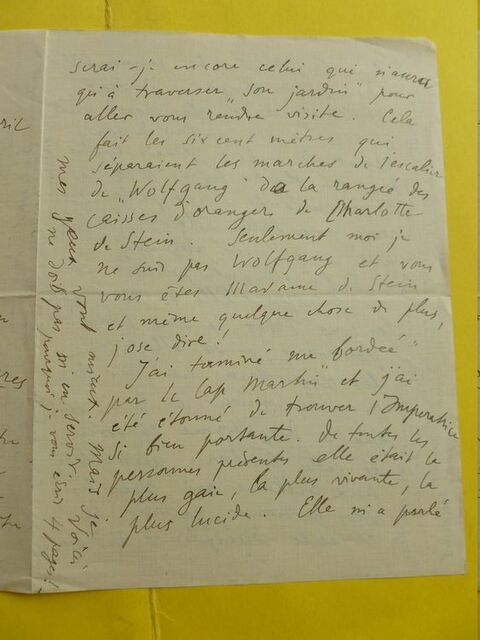 serai-je encore celui qui n'aura
qu'à traverser "son jardin" pour
aller vous rendre visite. Cela
fait les six cent mètres qui
séparaient les marches de l'escalier
de "Wolfgang" de la rangée des
caisses d'oranger de Charlotte
de Stein. Seulement moi je
ne suis pas Wolfgang et vous
vous êtes Madame de Stein
et même quelque chose de plus,
j'ose dire!
J'ai terminé ma "bordée"
par le Cap Martin et j'ai
été étonné de trouver l'Impératrice
si bien portante. De toutes les
personnes présentes elle était la
plus gaie, la plus vivante, la
plus lucide. Elle m'a parlé
mes yeux vont mieux. Mais je
ne dois pas m'en servir. Voici
pourquoi je vous écris 4 pages!
ril
res